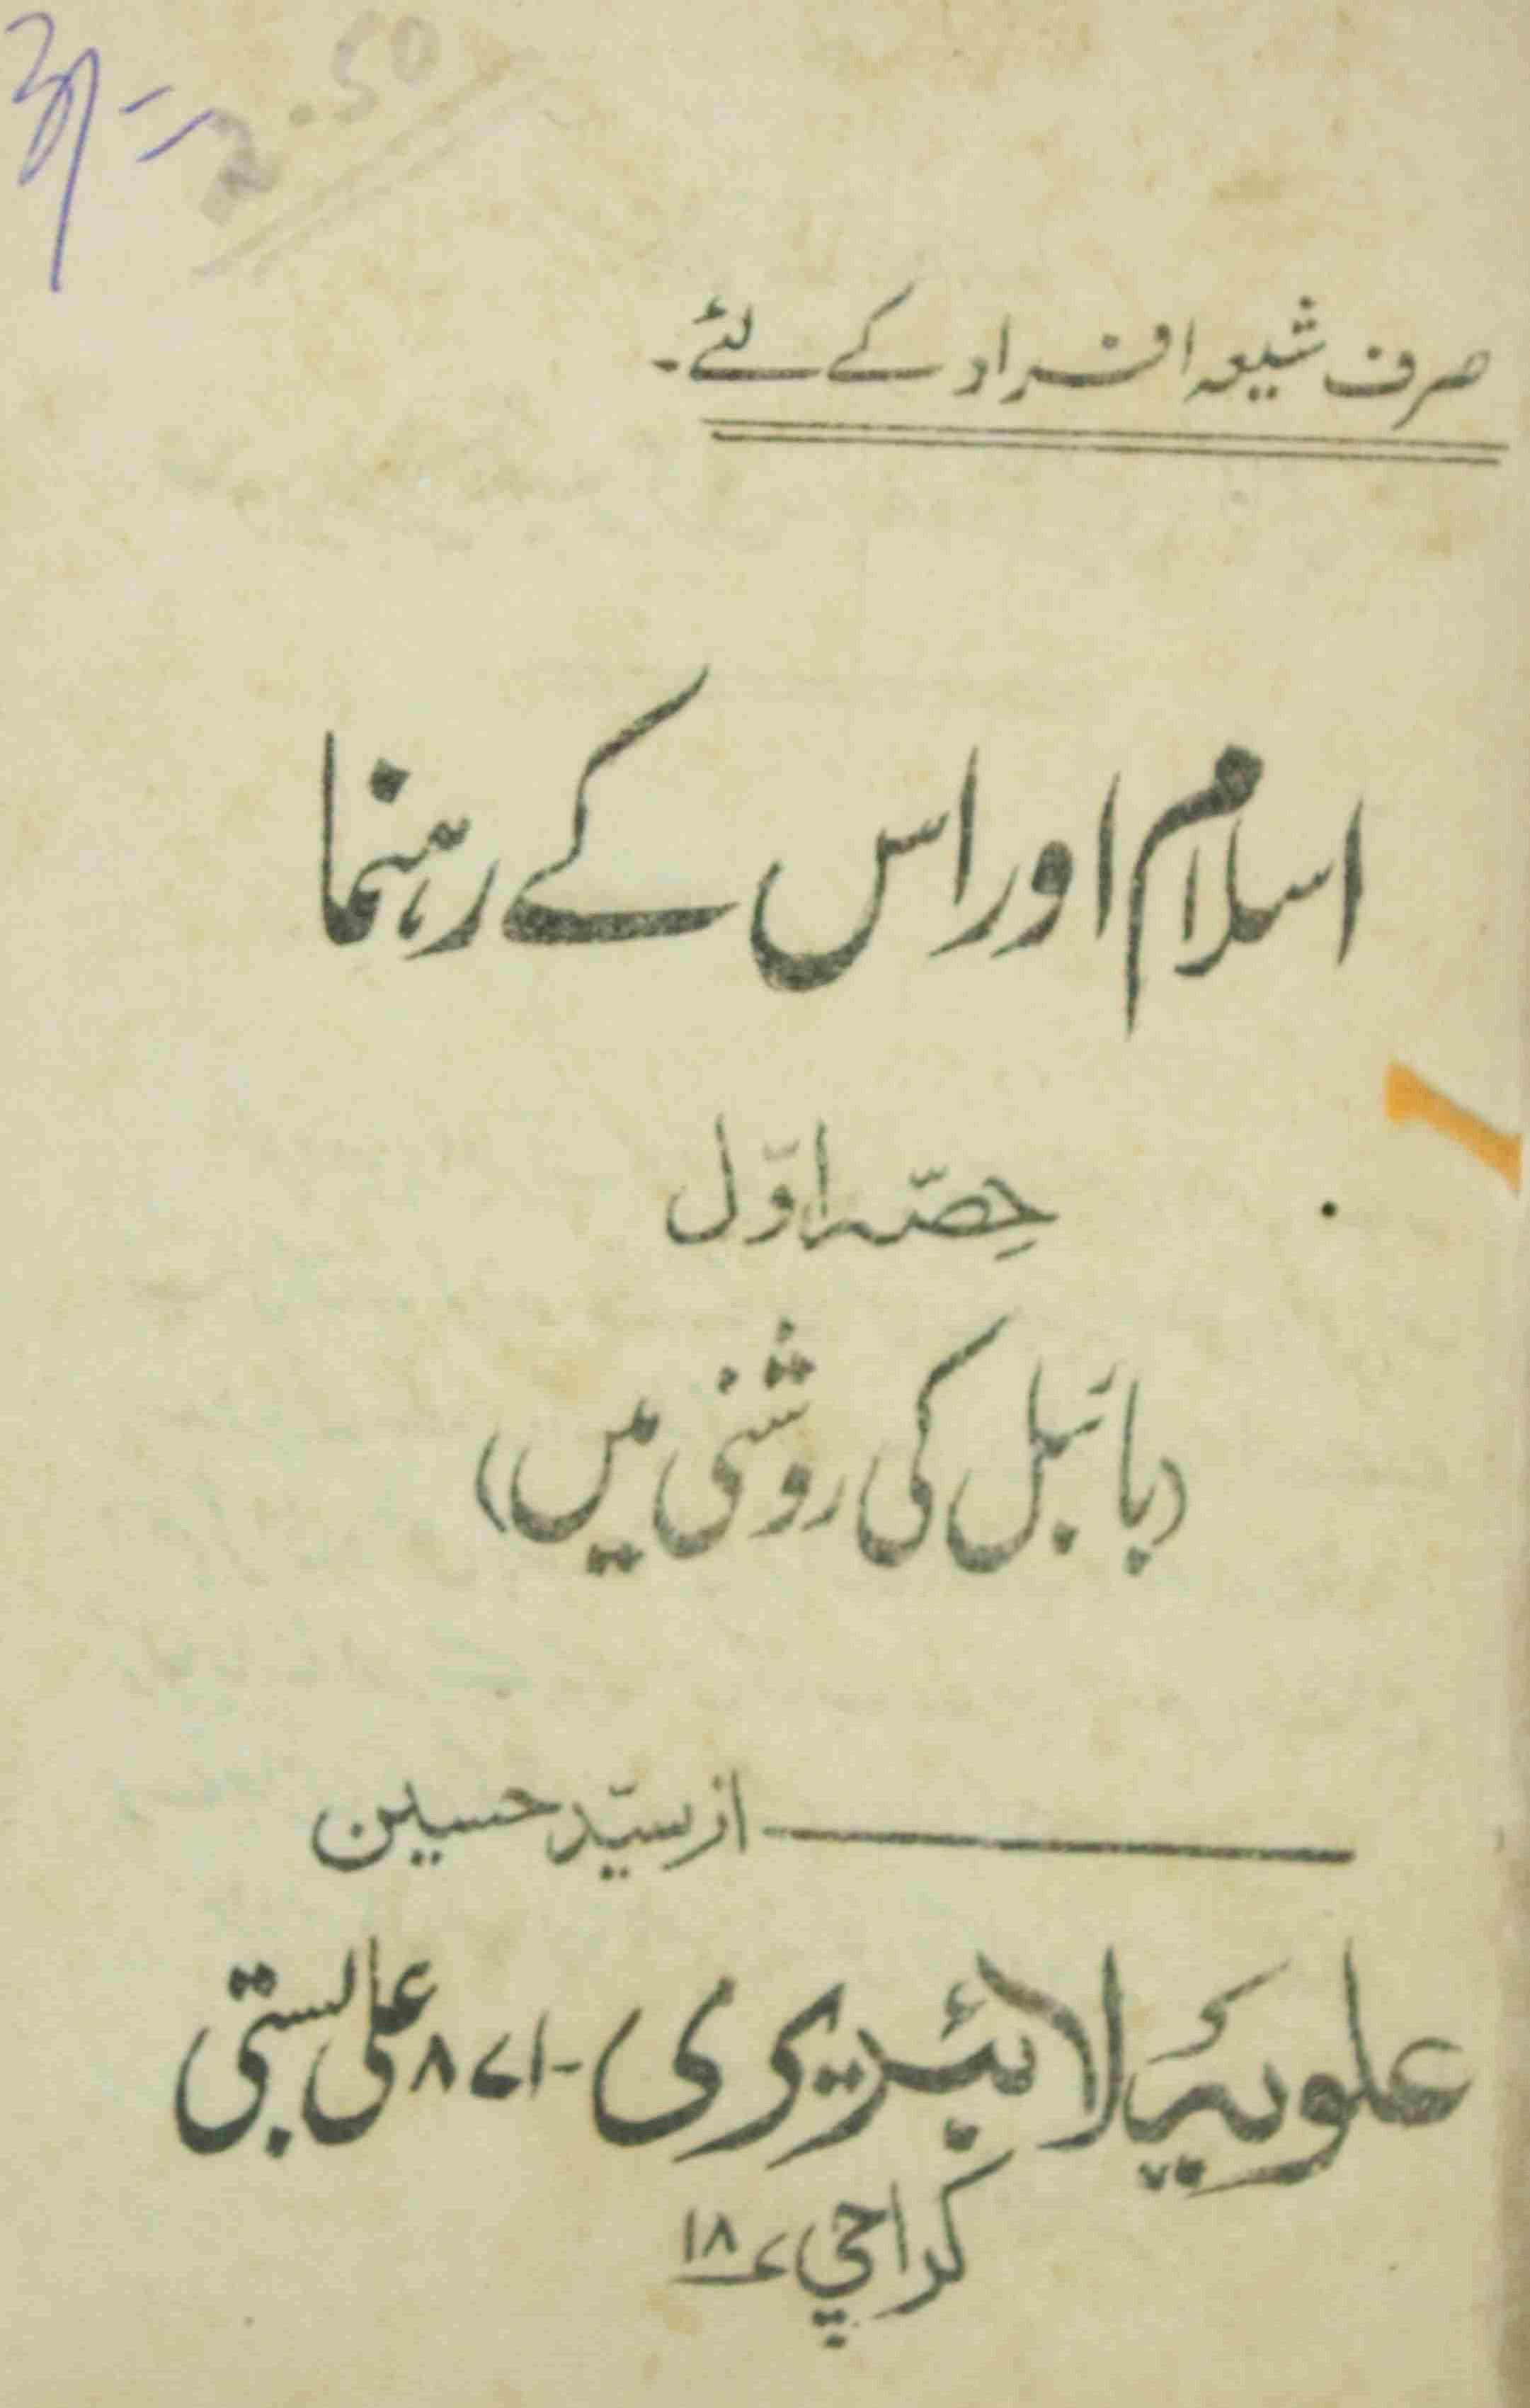 2.50
صرف شیعہ افراد کے لئے۔
اسلام اور اس کے رہنما
حصّہ اوّل
(بائبل کی روشنی میں)
از سیّد حسین
علویہٴ لائبریری - ۸۷۱ علی بستی
کراچی ۱۸